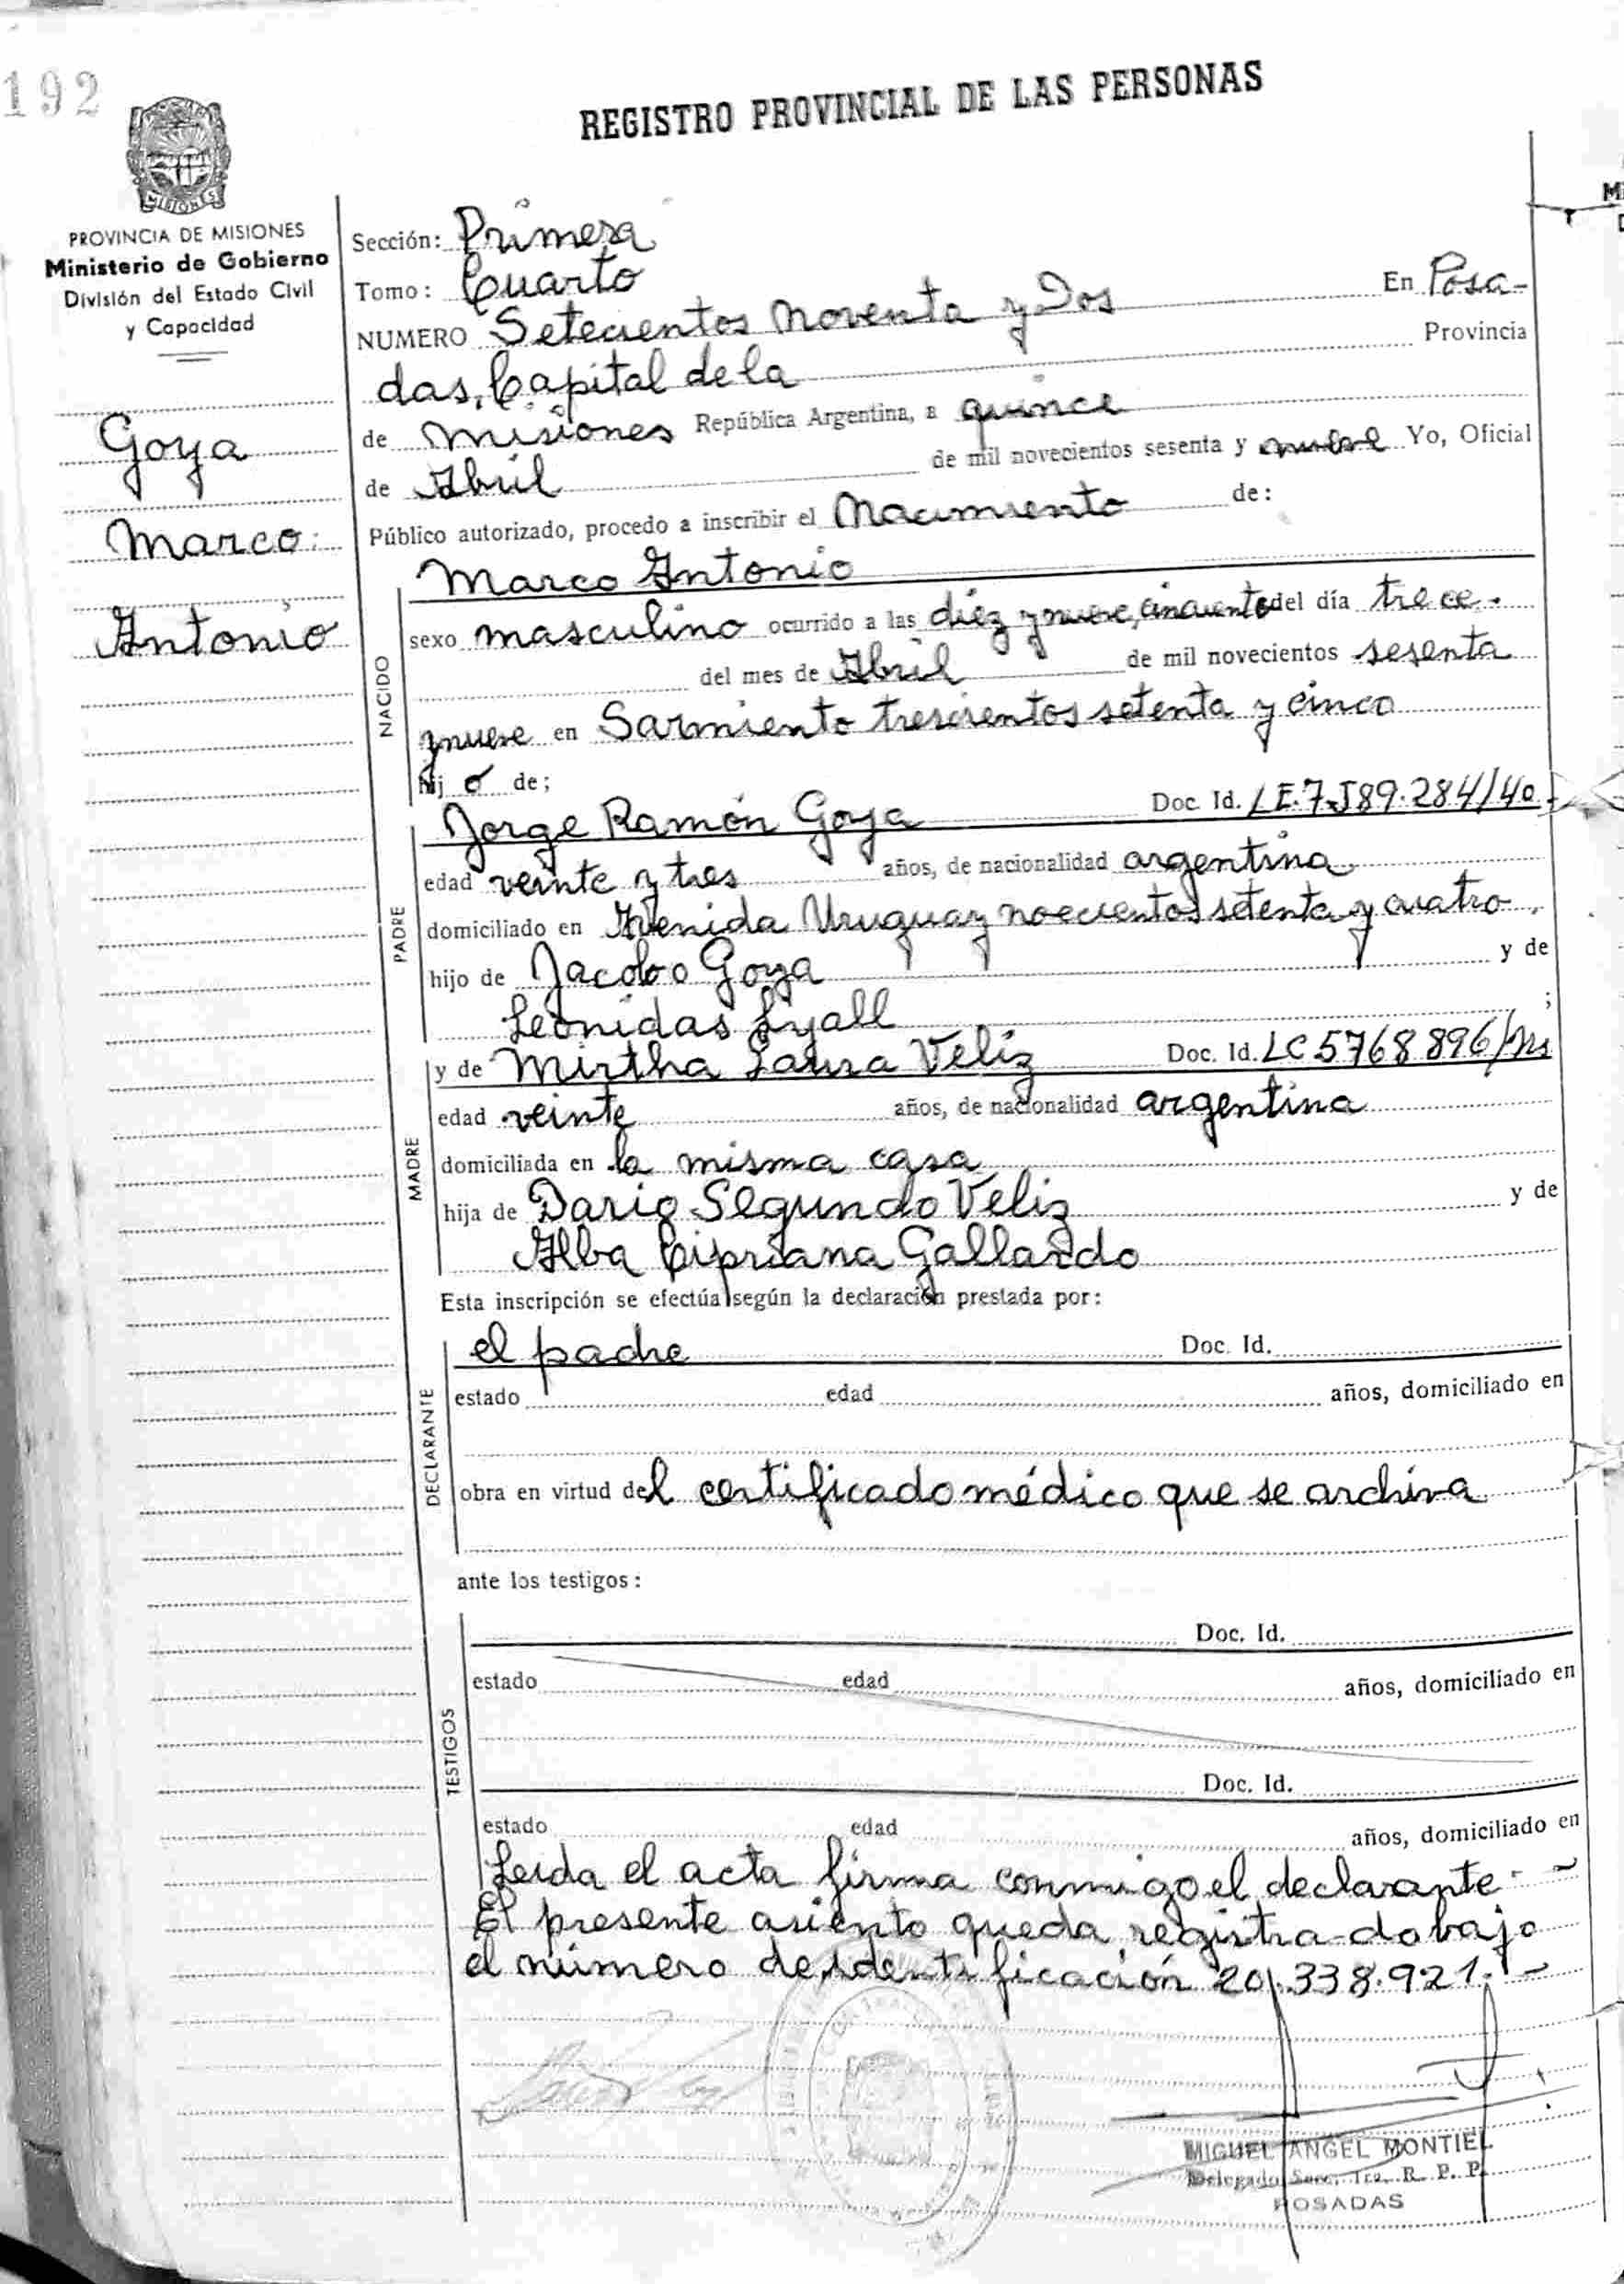 192
REGISTRO PROVINCIAL DE LAS PERSONAS
MISIONES
PROVINCIA DE MISIONES
Ministerio de Gobierno
División del Estado Civil
y Capacidad
Goya
Marco
Antonio
Sección: Primera
Tomo: Cuarto
NUMERO Setecientos noventa y Dos En Posa-
das, Capital de la Provincia
de Misiones República Argentina, a quince
de Abril de mil novecientos sesenta y nueve Yo, Oficial
Público autorizado, procedo a inscribir el Nacimiento de:
NACIDO
Marco Antonio
sexo masculino ocurrido a las diez y nueve, cincuenta del día trece.
del mes de Abril de mil novecientos sesenta
y nueve en Sarmiento trescientos setenta y cinco
hijo de;
PADRE
Jorge Ramón Goya Doc. Id. LE.7.589.284/40
edad veinte y tres años, de nacionalidad argentina
domiciliado en Avenida Uruguay noecientos setenta y cuatro.
hijo de Jacobo Goya y de
Leonidas Lyall ;
MADRE
y de Mirtha Laura Veliz Doc. Id. LC 5768896/
edad veinte años, de nacionalidad argentina
domiciliada en la misma casa
hija de Dario Segundo Veliz y de
Alba Cipriana Gallardo
Esta inscripción se efectúa según la declaración prestada por:
DECLARANTE
el padre Doc. Id.
estado edad años, domiciliado en
obra en virtud del certificado médico que se archiva
ante los testigos:
TESTIGOS
Doc. Id.
estado edad años, domiciliado en
Doc. Id.
estado edad años, domiciliado en
Leida el acta firma conmigo el declarante - -
El presente asiento queda registra-do bajo
el número de identificación 20.338.921. -
MIGUEL ANGEL MONTIEL
Delegado R. P. P.
POSADAS